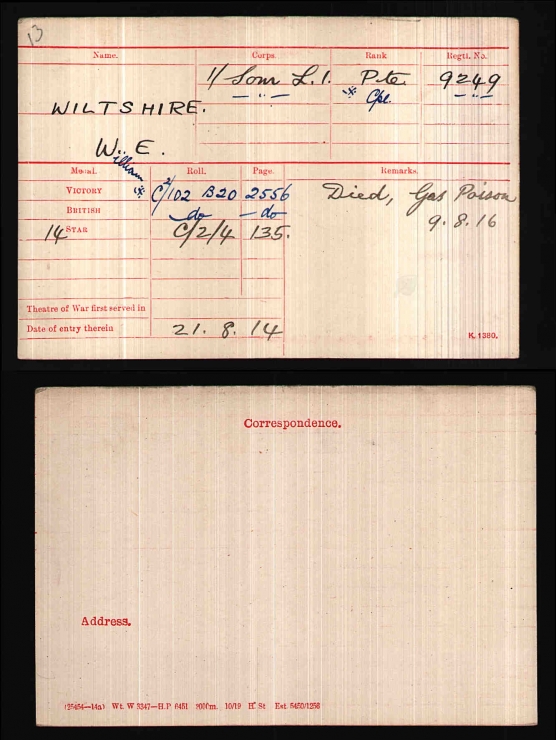 13
Name. Corps. Rank. Regtl. No.
1/ Som L.I. Pte 9249
— " — * Cpl. — " —
WILTSHIRE.
W. E.
William *
Medal. Roll. Page. Remarks.
VICTORY C/2/102 B20 2556 Died, Gas Poison
BRITISH — do — do 9.8.16
14 STAR C/2/4 135.
Theatre of War first served in
Date of entry therein 21. 8. 14 K. 1380.
Correspondence.
Address.
(25454—14a) Wt. W 3347—H.P. 6451 200m. 10/19 H. St Est. 5450/1256